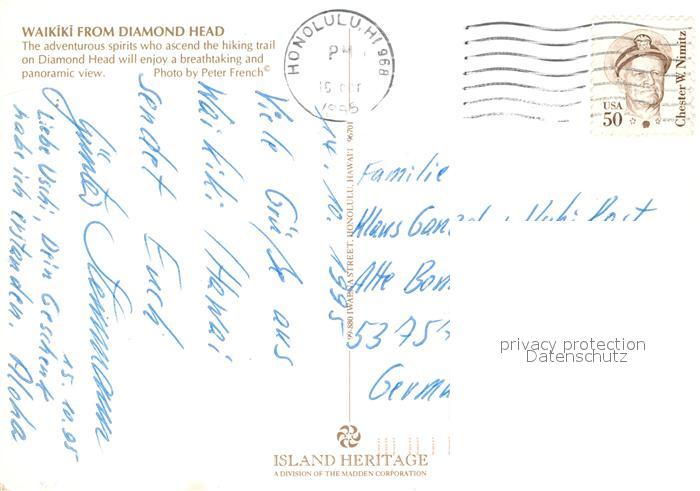 WAIKĪKĪ FROM DIAMOND HEAD
The adventurous spirits who ascend the hiking trail
on Diamond Head will enjoy a breathtaking and
panoramic view. Photo by Peter French©
HONOLULU, HI 968
PM
15
1995
USA
50
Chester W. Nimitz
14. 10. 1995
Viele Grüße aus
Waikiki Hawai
sendet Euch
Günter
15. 10. 95
Liebe Uschi, Dein Geschenk
habe ich erstanden. Aloha
99-880 IWAENA STREET, HONOLULU, HAWAI'I 96701
Familie
Klaus
Alte
5375
Germa
privacy protection
Datenschutz
ISLAND HERITAGE
A DIVISION OF THE MADDEN CORPORATION